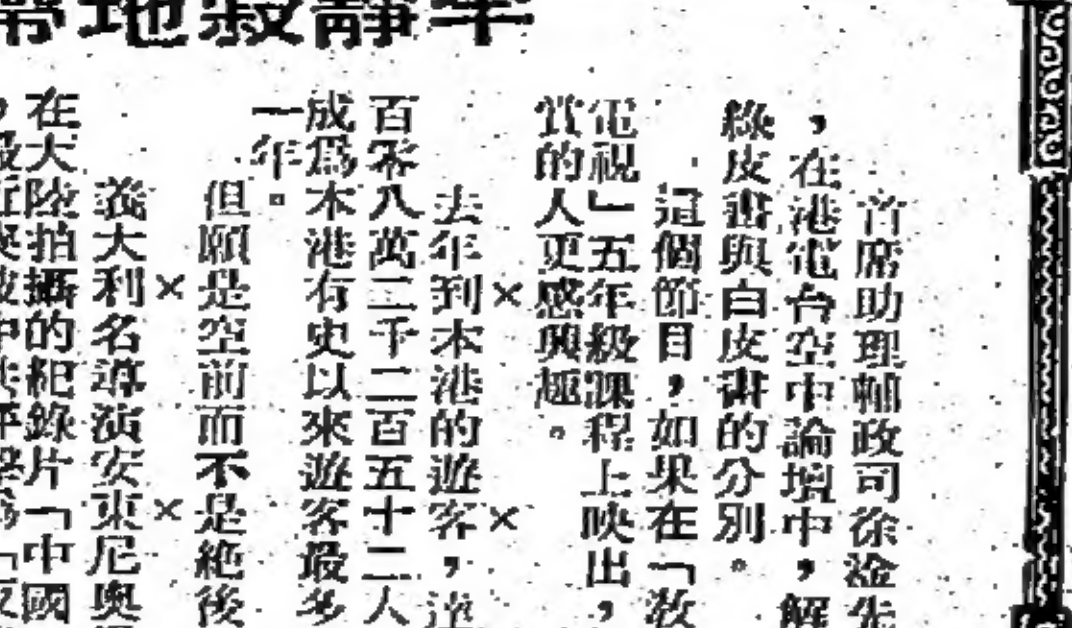 年靜寂地帶
首席助理輔政司徐淦先
，在港電台空中論壇中，解
綠皮書與白皮書的分別。
這個節目，如果在「教
電視」五年級課程上映出，
賞的人更感興趣。
× ×
去年到本港的遊客，達
百零八萬二千二百五十二人
成爲本港有史以來遊客最多
一年。
但願是空前而不是絕後
× ×
義大利名導演安東尼奧
在大陸拍攝的紀錄片「中國